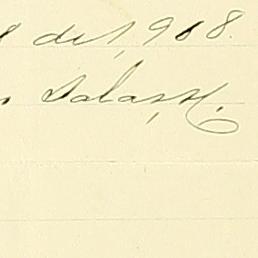 de 1,908.
Salas H.